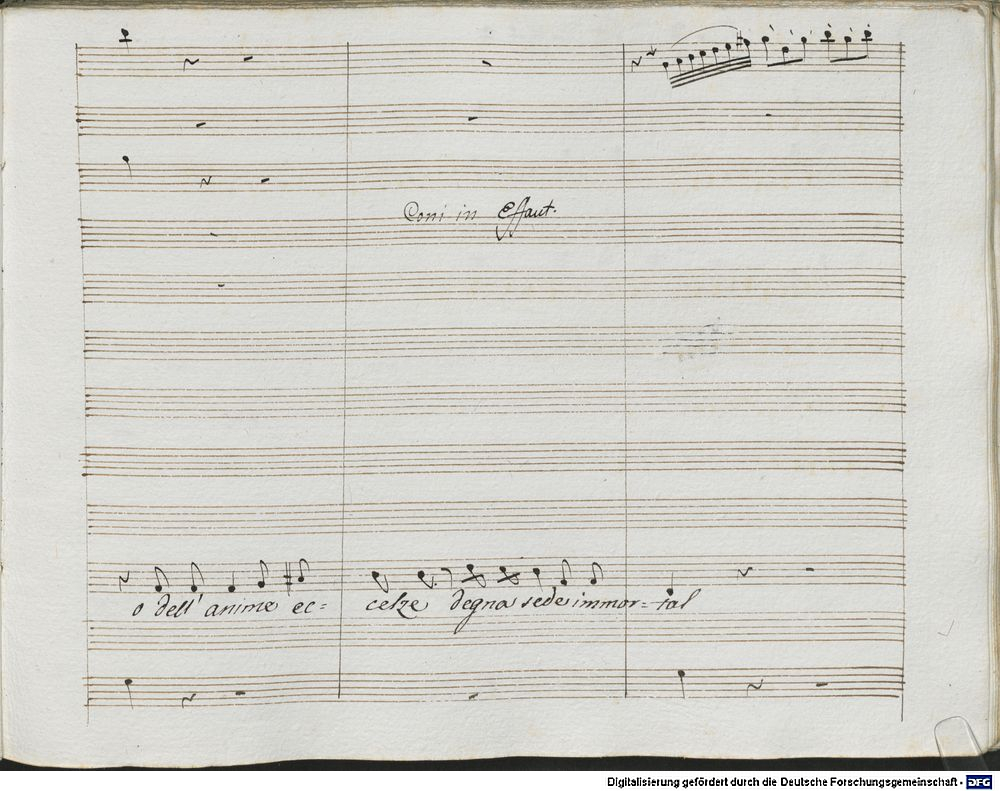 Coni in Effaut.
o dell' anime ec= celze degna sede immor= tal
Digitalisierung gefördert durch die Deutsche Forschungsgemeinschaft - DFG